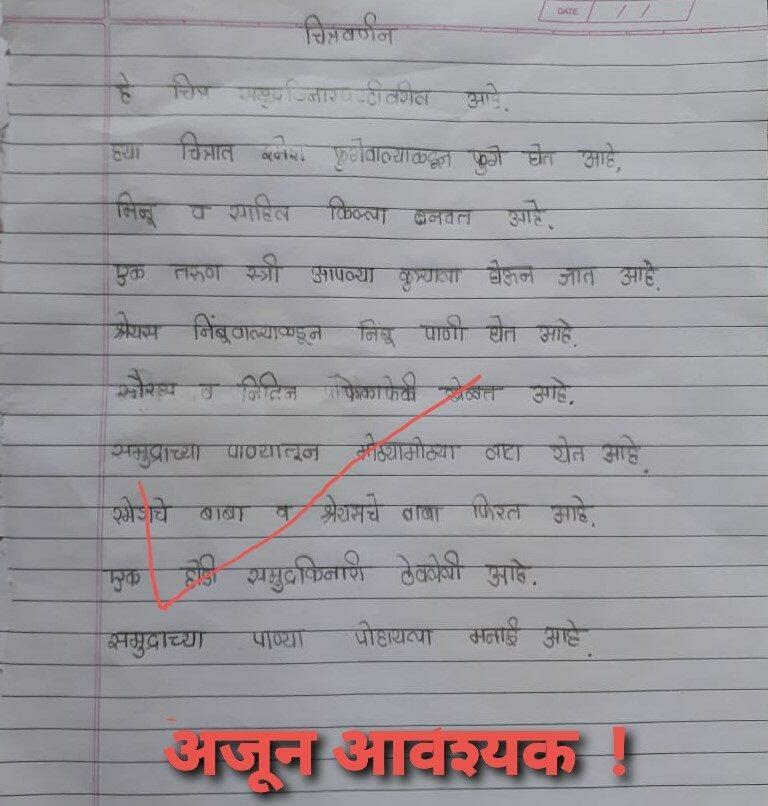 DATE / /
चित्रवर्णन
हे चित्र आहे.
ह्या चित्रात रमेश फुगेवाल्याकडून फुगे घेत आहे.
मिनू व साहिल किल्ला बनवत आहे.
एक तरुण स्त्री आपल्या कुत्र्याला घेऊन जात आहे.
श्रेयस निंबूवाल्याकडून निंबू पाणी घेत आहे.
सौरभ व नितिन फेकाफेकी खेळत आहे.
समुद्राच्या पाण्यातून मोठ्यामोठ्या लाटा येत आहे.
रमेशचे बाबा व श्रेयसचे बाबा फिरत आहे.
एक होडी समुद्रकिनारी ठेवलेली आहे.
समुद्राच्या पाण्या पोहायला मनाई आहे.
अजून आवश्यक !